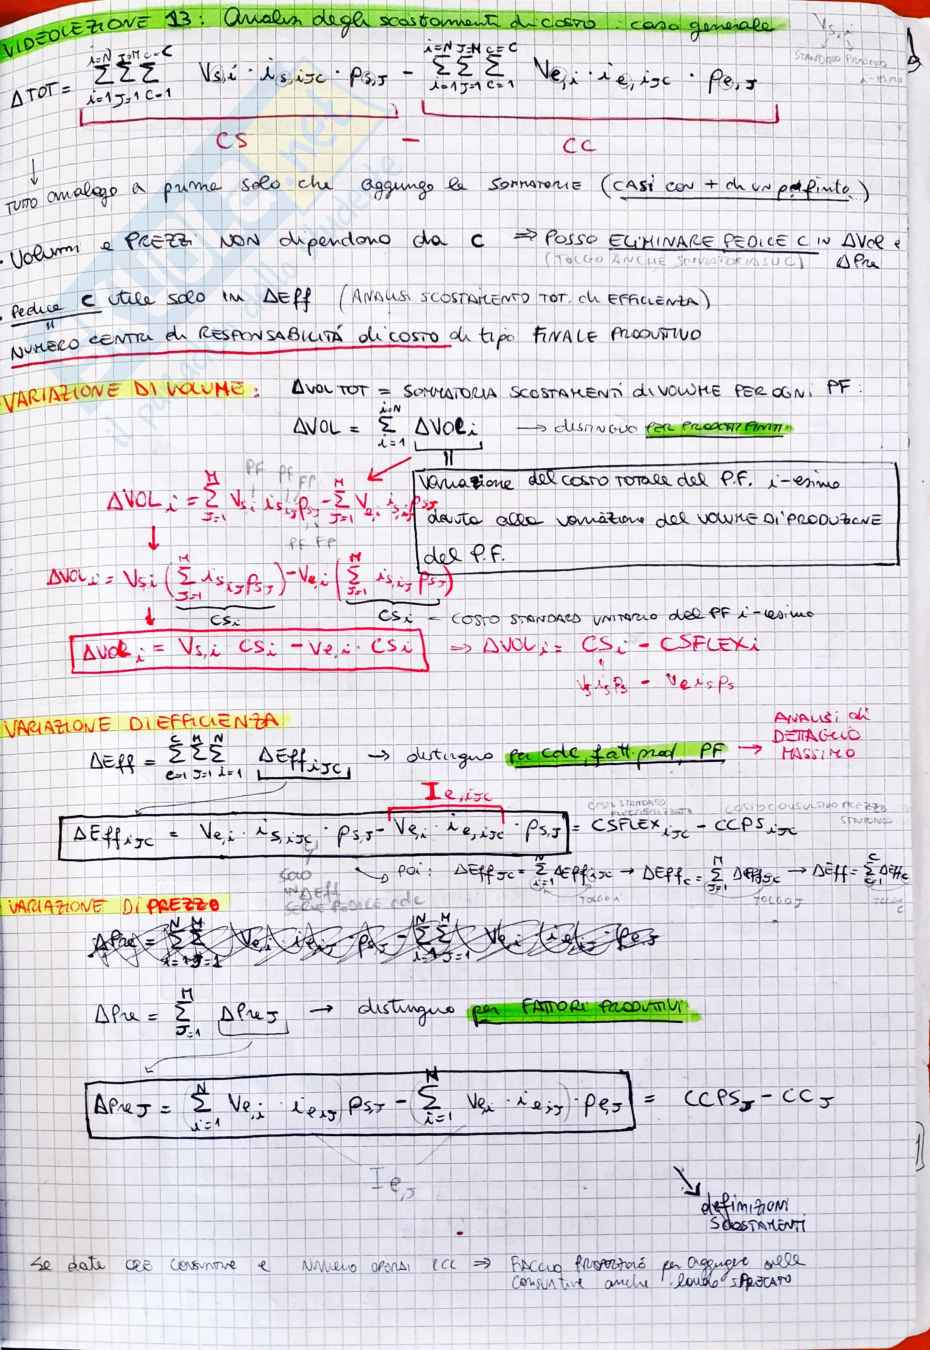 VIDEOLEZIONE 13: Analisi degli scostamenti di costo: caso generale
Vs,i
STANDARD PRODOTTO i-esimo
ΔTOT = Σ(i=1, i=N) Σ(J=1, J=M) Σ(C=1, C=C) Vs,i · is,iJC · ps,J − Σ(i=1, i=N) Σ(J=1, J=M) Σ(C=1, C=C) Ve,i · ie,iJC · pe,J
CS − CC
↓
TUTTO analogo a prima solo che aggiungo le SOMMATORIE (CASI CON + di UN p. finito)
· Volumi e PREZZI NON dipendono da C ⇒ POSSO ELIMINARE PEDICE C IN ΔVol e ΔPre
(TOLGO ANCHE SOMMATORIA SU C)
· Pedice C utile solo in ΔEff (ANALISI SCOSTAMENTO TOT. di EFFICIENZA)
=
NUMERO CENTRI di RESPONSABILITÁ di costo di tipo FINALE PRODUTTIVO
VARIAZIONE DI VOLUME: ΔVOL TOT = SOMMATORIA SCOSTAMENTI di VOLUME PER OGNI PF:
ΔVOL = Σ(i=1, i=N) ΔVOLi → distinguo PER PRODOTTI FINITI
PF PF FP
ΔVOLi = Σ(J=1, M) Vs,i isiJ psJ − Σ(J=1, M) Ve,i isiJ psJ
PF FP
Variazione del costo totale del P.F. i-esimo
dovuta alla variazione del VOLUME DI PRODUZIONE
del P.F.
↓
ΔVOLi = Vs,i (Σ(J=1, M) isiJ psJ) − Ve,i (Σ(J=1, M) is,iJ psJ)
CSi CSi = COSTO STANDARD UNITARIO del PF i-iesimo
↓
ΔVOLi = Vs,i CSi − Ve,i · CSi ⇒ ΔVOLi = CSi − CSFLEXi
Vs is ps − Ve is ps
VARIAZIONE DI EFFICIENZA
ΔEff = Σ(c=1, C) Σ(J=1, M) Σ(i=1, N) ΔEffiJC → distinguo per cdc, fatt. prod, PF → ANALISI di DETTAGLIO MASSIMO
Ie,iJC
ΔEffiJC = Ve,i · is,iJC · ps,J − Ve,i · ie,iJC · ps,J = CSFLEXiJC − CCPSiJC
COSTO STANDARD
COSTO CONSUNTIVO PREZZO STANDARD
SOLO IN ΔEff SERVE PEDICE cdc
poi: ΔEffJC = Σ(i=1, N) ΔEffiJC → ΔEffc = Σ(J=1, M) ΔEffJC → ΔEff = Σ(c=1, C) ΔEffc
TOLGO i TOLGO J TOLGO C
VARIAZIONE DI PREZZO
ΔPre = Σ(i=1, N) Σ(J=1, M) Ve,i ie,iJ · ps,J − Σ(i=1, N) Σ(J=1, M) Ve,i ie,iJ · pe,J
ΔPre = Σ(J=1, M) ΔPreJ → distinguo per FATTORI PRODUTTIVI
ΔPreJ = (Σ(i=1, N) Ve,i · ie,iJ) ps,J − (Σ(i=1, N) Ve,i · ie,iJ) · pe,J = CCPSJ − CCJ
Ie,J
definizioni
SCOSTAMENTI
Se date ORE CONSUNTIVE e NUMERO OPERAI ⇒ FACCIO PROPORZIONE per aggiungere alle
consuntive anche SPRECATO